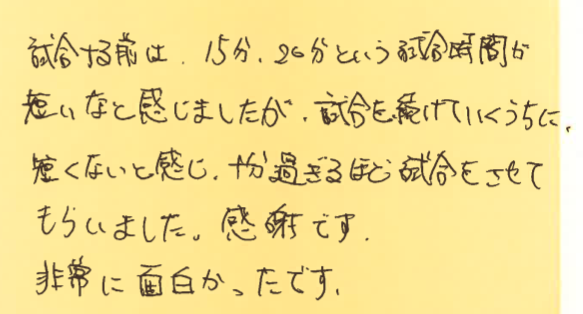 試合する前は、15分、20分という試合時間が
短いなと感じましたが、試合を続けていくうちに、
短くないと感じ、十分過ぎるほど試合をさせて
もらいました。感謝です。
非常に面白かったです。